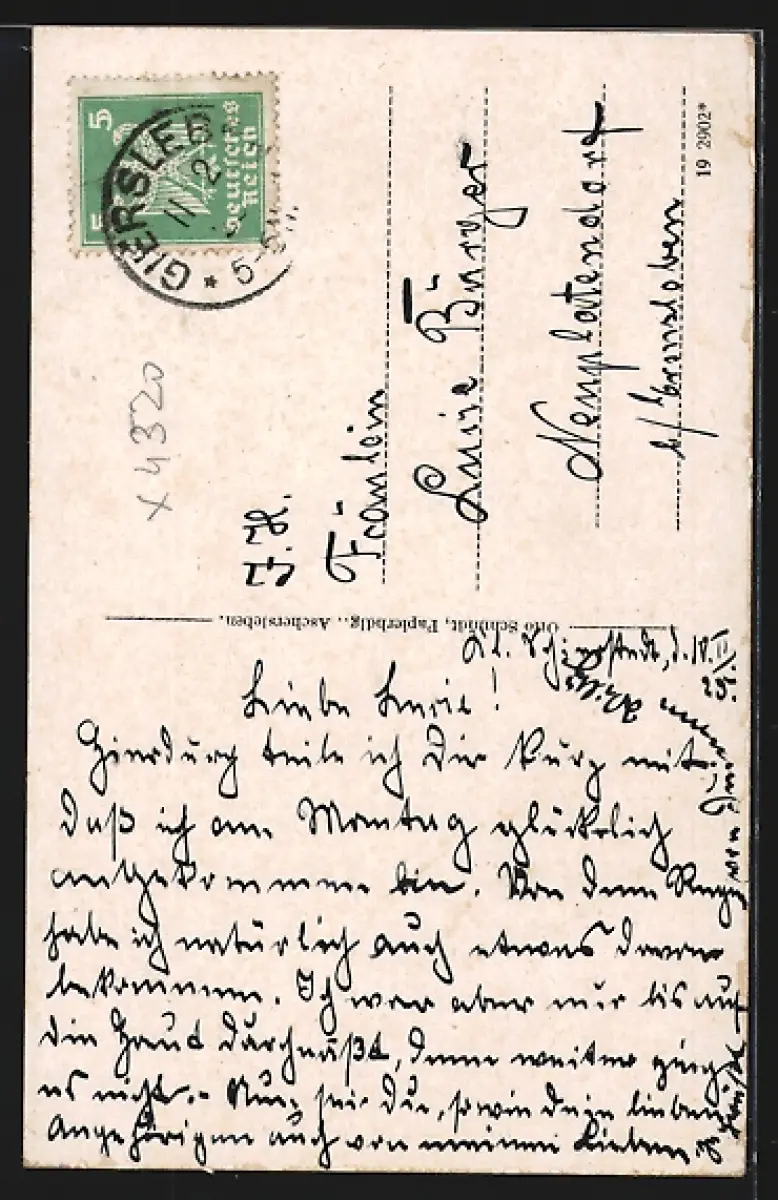 5 5
Deutsches Reich
GIERSLEB
11.2
5-6N.
x 4320
J.H.
Fräulein
Luise Bürger
Neuplatendorf
b/ Ermsleben
19 2902*
Otto Schmidt, Papierhdlg., Aschersleben.
Kl. Schierstedt, d. 10. II. 25.
Liebe Luise!
Hierdurch teile ich Dir kurz mit
daß ich am Montag glücklich
angekommen bin. Von dem Rege
habe ich natürlich auch etwas davon
bekommen. Ich war aber nur bis auf
die Haut durchnäßt, denn weiter ging
es nicht. - Nun sei Du, sowie Deine lieben
Angehörigen auch von meinen Lieben
gegrüßt von Deiner